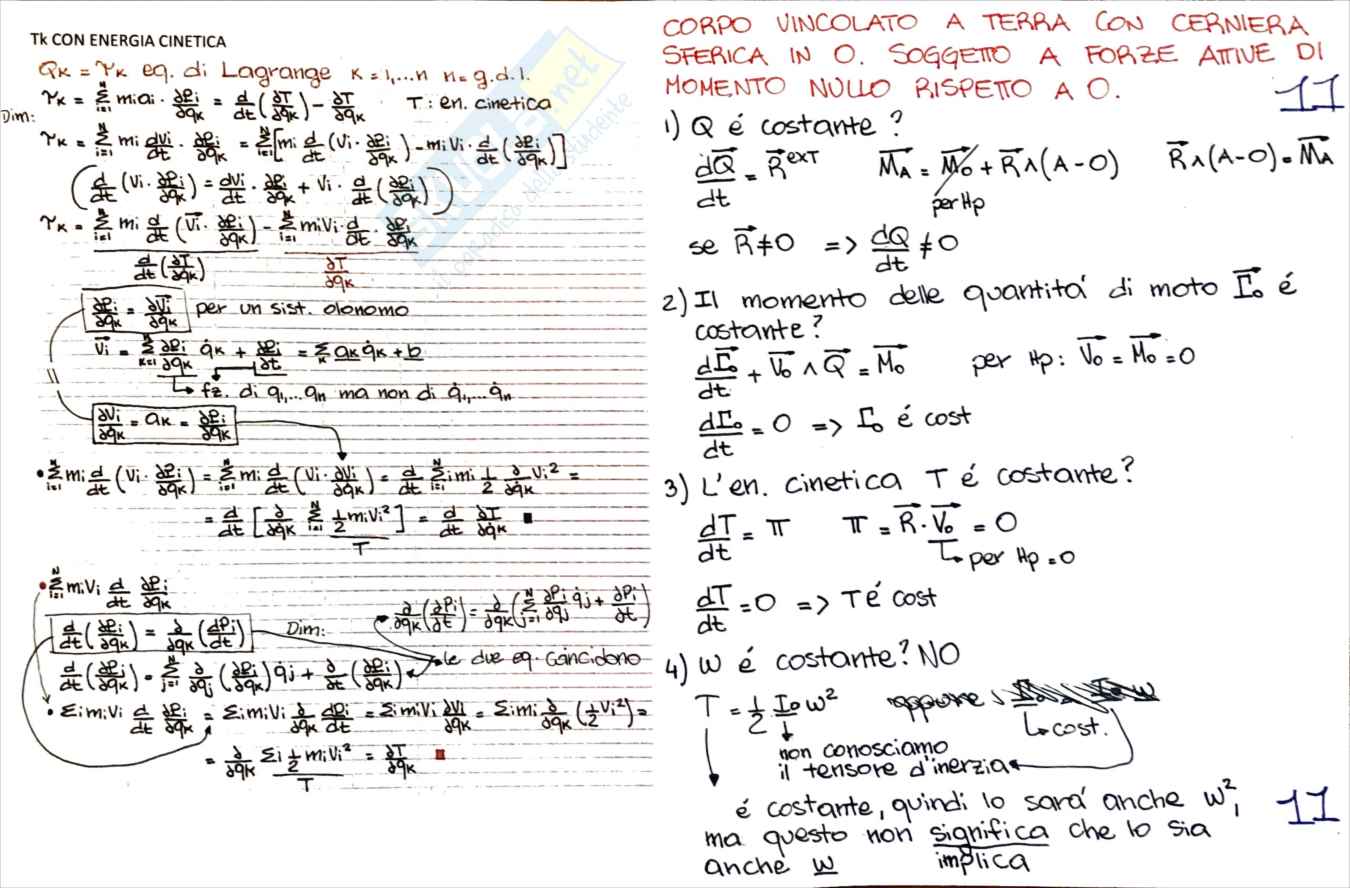 Tk CON ENERGIA CINETICA
Qκ = τκ eq. di Lagrange κ = 1,...n n = g.d.l.
τκ = Σᵢ₌₁ᴺ miai · ∂Pi/∂qκ = d/dt(∂T/∂q̇κ) - ∂T/∂qκ T: en. cinetica
Dim:
τκ = Σᵢ₌₁ᴺ mi dvi/dt · ∂Pi/∂qκ = Σᵢ₌₁ᴺ[mi d/dt (Vi · ∂Pi/∂qκ) - miVi · d/dt (∂Pi/∂qκ)]
(d/dt (Vi · ∂Pi/∂qκ) = dVi/dt · ∂Pi/∂qκ + Vi · d/dt (∂Pi/∂qκ))
τκ = Σᵢ₌₁ᴺ mi d/dt (Vi · ∂Pi/∂qκ) - Σᵢ₌₁ᴺ miVi · d/dt · ∂Pi/∂qκ
d/dt (∂T/∂q̇κ) ∂T/∂qκ
∂Pi/∂qκ = ∂Vi/∂q̇κ per un sist. olonomo
Vi = Σ ∂Pi/∂qκ q̇κ + ∂Pi/∂t = Σκ aκ q̇κ + b
fz. di q1,...qn ma non di q̇1,...q̇n
∂Vi/∂q̇κ = aκ = ∂Pi/∂qκ
• Σᵢ₌₁ᴺ mi d/dt (Vi · ∂Pi/∂qκ) = Σᵢ₌₁ᴺ mi d/dt (Vi · ∂Vi/∂q̇κ) = d/dt Σᵢ₌₁ᴺ i mi 1/2 ∂/∂q̇κ Vi² =
= d/dt [∂/∂q̇κ Σᵢ₌₁ᴺ 1/2 miVi²] = d/dt ∂T/∂q̇κ ■
T
• Σᵢ₌₁ᴺ miVi d/dt ∂Pi/∂qκ
d/dt (∂Pi/∂qκ) = ∂/∂qκ (dPi/dt) Dim: ∂/∂qκ (∂Pi/∂t) = ∂/∂qκ (Σⱼ₌₁ᴺ ∂Pi/∂qj q̇j + ∂Pi/∂t)
d/dt (∂Pi/∂qκ) = Σⱼ₌₁ᴺ ∂/∂qj (∂Pi/∂qκ) q̇j + ∂/∂t (∂Pi/∂qκ) le due eq. coincidono
• Σi miVi d/dt ∂Pi/∂qκ = Σi miVi ∂/∂qκ dPi/dt = Σi miVi ∂Vi/∂qκ = Σi mi ∂/∂qκ (1/2 Vi²) =
= ∂/∂qκ Σi 1/2 miVi² = ∂T/∂qκ ■
T
CORPO VINCOLATO A TERRA CON CERNIERA
SFERICA IN O. SOGGETTO A FORZE ATTIVE DI
MOMENTO NULLO RISPETTO A O.
11
1) Q é costante?
dQ/dt = R^EXT MA = MO + R ∧ (A-O) R ∧ (A-O) = MA
per Hp
se R ≠ 0 => dQ/dt ≠ 0
2) Il momento delle quantitá di moto Γo é
costante?
dΓo/dt + Vo ∧ Q = Mo per Hp: Vo = Mo = 0
dΓo/dt = 0 => Γo é cost
3) L'en. cinetica T é costante?
dT/dt = π π = R · Vo = 0
per Hp = 0
dT/dt = 0 => T é cost
4) ω é costante? NO
T = 1/2 Io ω² oppure
cost.
non conosciamo
il tensore d'inerzia
é costante, quindi lo sará anche ω²,
11
ma questo non significa che lo sia
implica
anche ω